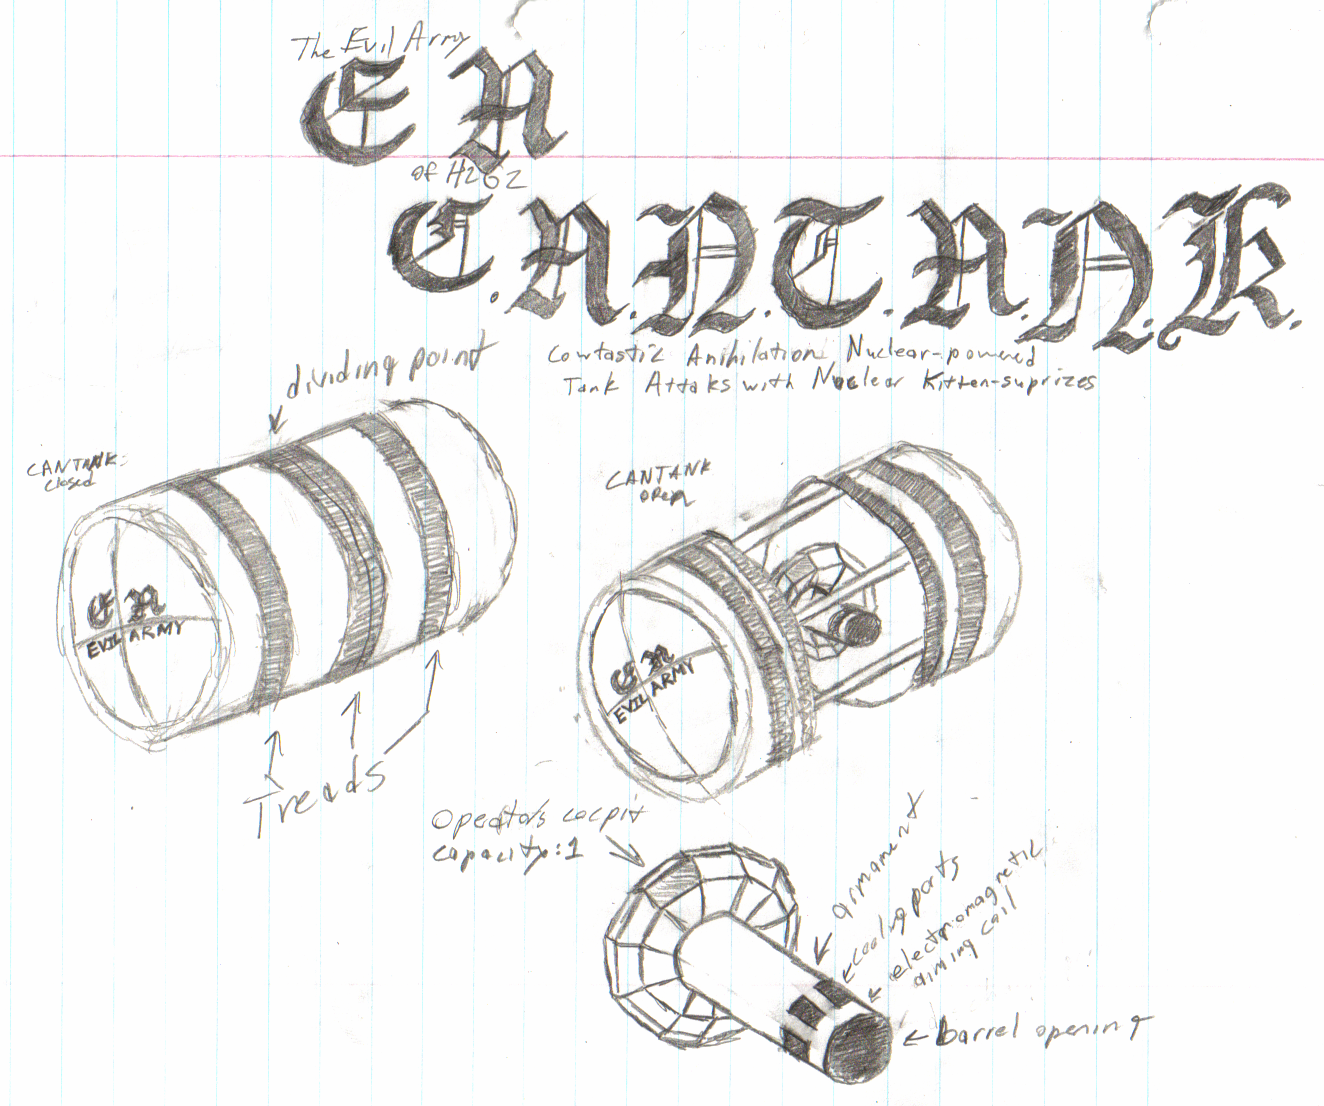 The Evil Army
E A
of H262
C.A.N.T.A.N.K.
Cowtastic Anihilation, Nuclear-powered
Tank Attaks with Nuclear Kitten-suprizes
dividing point
CANTANK:
closed
CANTANK
open
E A
EVIL ARMY
E A
EVIL ARMY
Treads
Operators cocpit
capacity:1
armament
cooling ports
electromagnetic
aiming coil
barrel opening